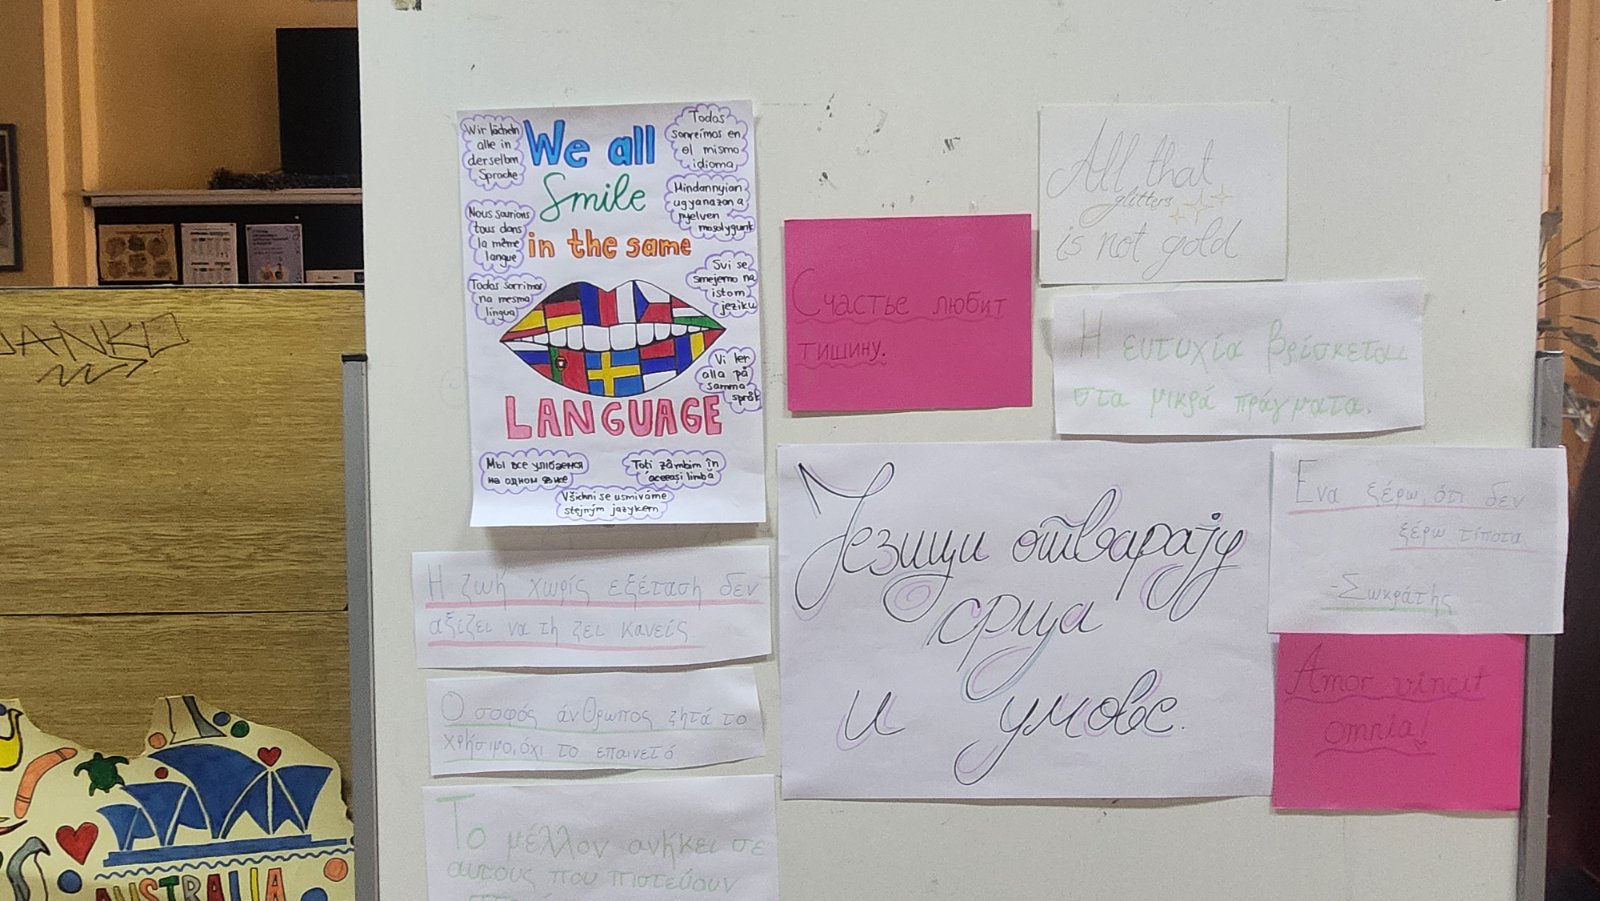 We all
Smile
in the same
LANGUAGE
Wir lächeln
alle in
derselben
Sprache
Nous sourions
tous dans
la même
langue
Todos sorrimos
na mesma
lingua
Todos
sonreímos en
el mismo
idioma
Mindannyian
ugyanazon a
nyelven
mosolygunk
Svi se
smejemo na
istom
jeziku
Vi ler
alla på
samma
språk
Мы все улыбаемся
на одном языке
Toti zâmbim în
aceeași limbă
Všichni se usmíváme
stejným jazykem
Счастье любит
тишину.
All that
glitters
is not gold
Η ευτυχία βρίσκεται
στα μικρά πράγματα.
Језици отварају
срца
и умове.
Ένα ξέρω, ότι δεν
ξέρω τίποτα
-Σωκράτης
Amor vincit
omnia!
Η ζωή χωρίς εξέταση δεν
αξίζει να τη ζει κανείς
Ο σοφός άνθρωπος ζητά το
χρήσιμο, όχι το επαινετό
Το μέλλον ανήκει σε
αυτούς που πιστεύουν
JANKO
AUSTRALIA